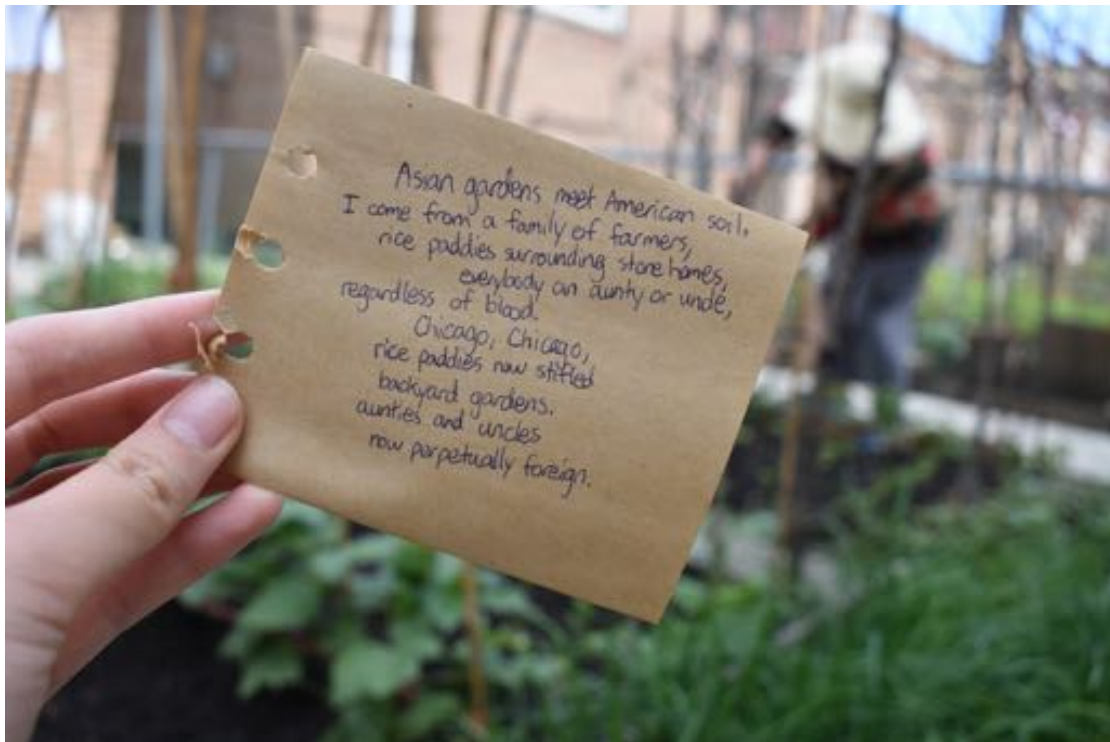 Asian gardens meet American soil.
I come from a family of farmers,
rice paddies surrounding stone homes,
everybody an aunty or uncle,
regardless of blood.
Chicago, Chicago,
rice paddies now stifled
backyard gardens.
aunties and uncles
now perpetually foreign.